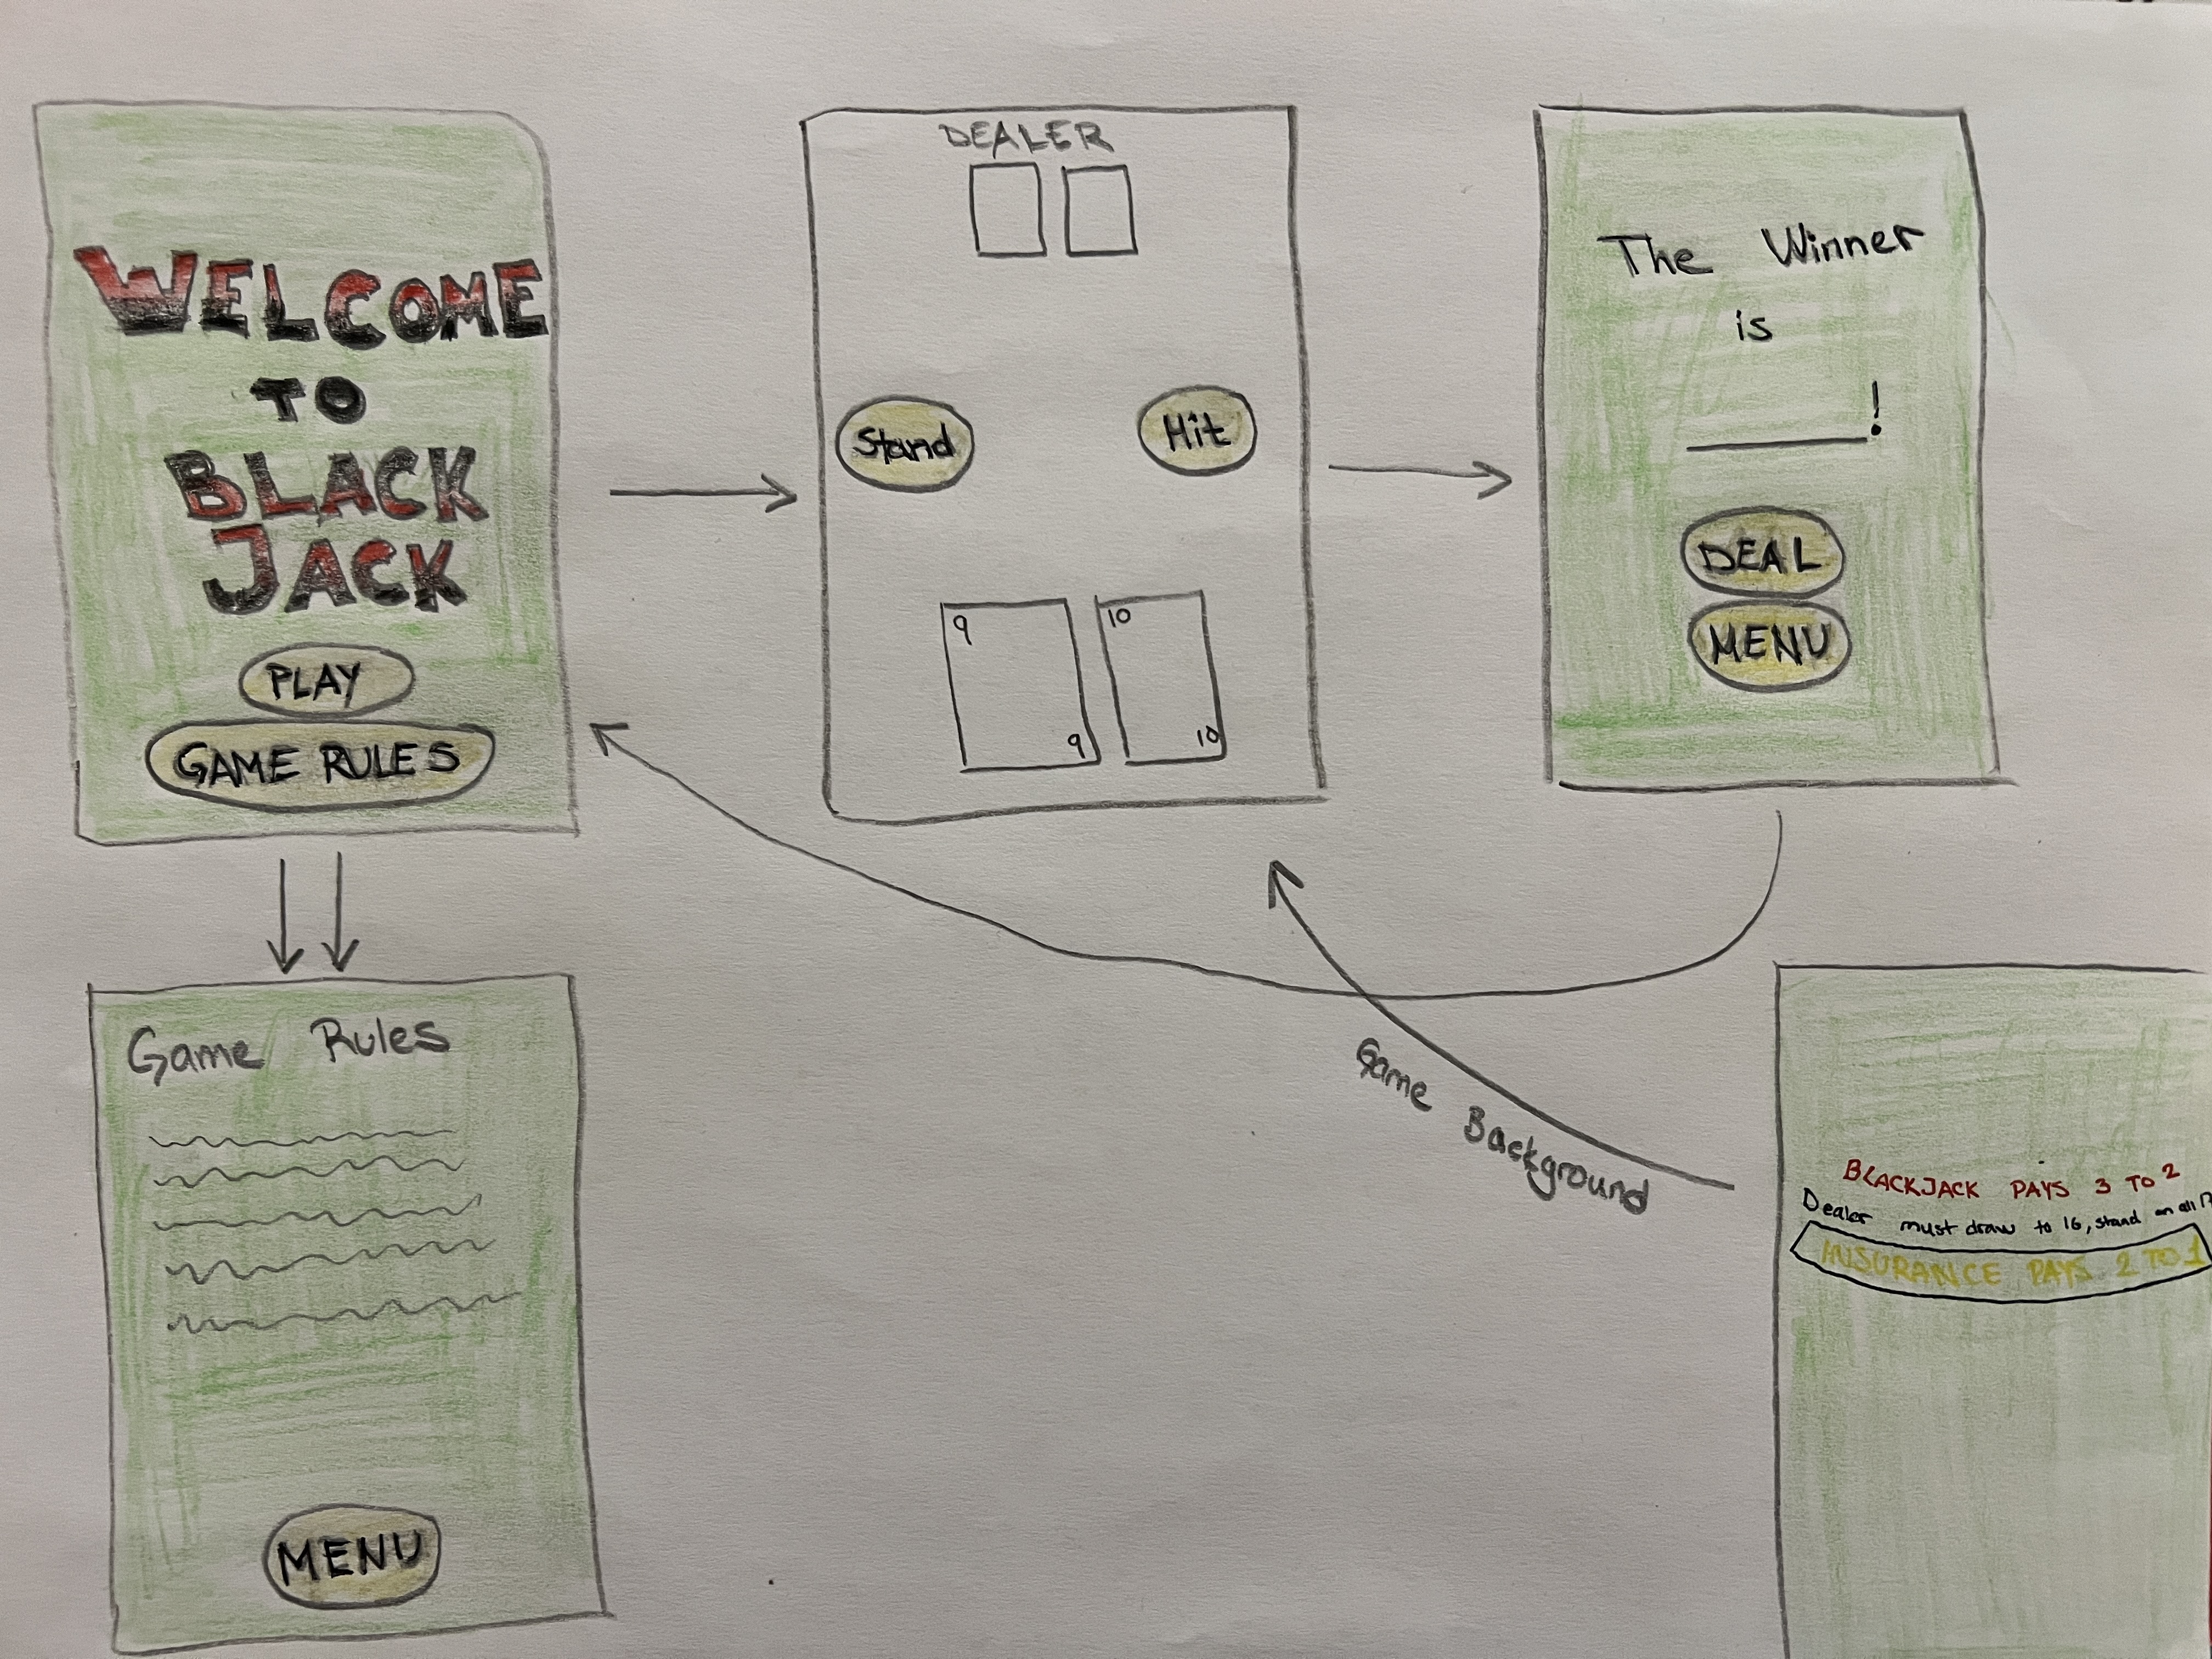 WELCOME
TO
BLACK
JACK
PLAY
GAME RULES
DEALER
Stand
Hit
9
9
10
10
The Winner
is
!
DEAL
MENU
Game Rules
MENU
Game Background
BLACKJACK PAYS 3 TO 2
Dealer must draw to 16, stand on all 17
INSURANCE PAYS 2 TO 1